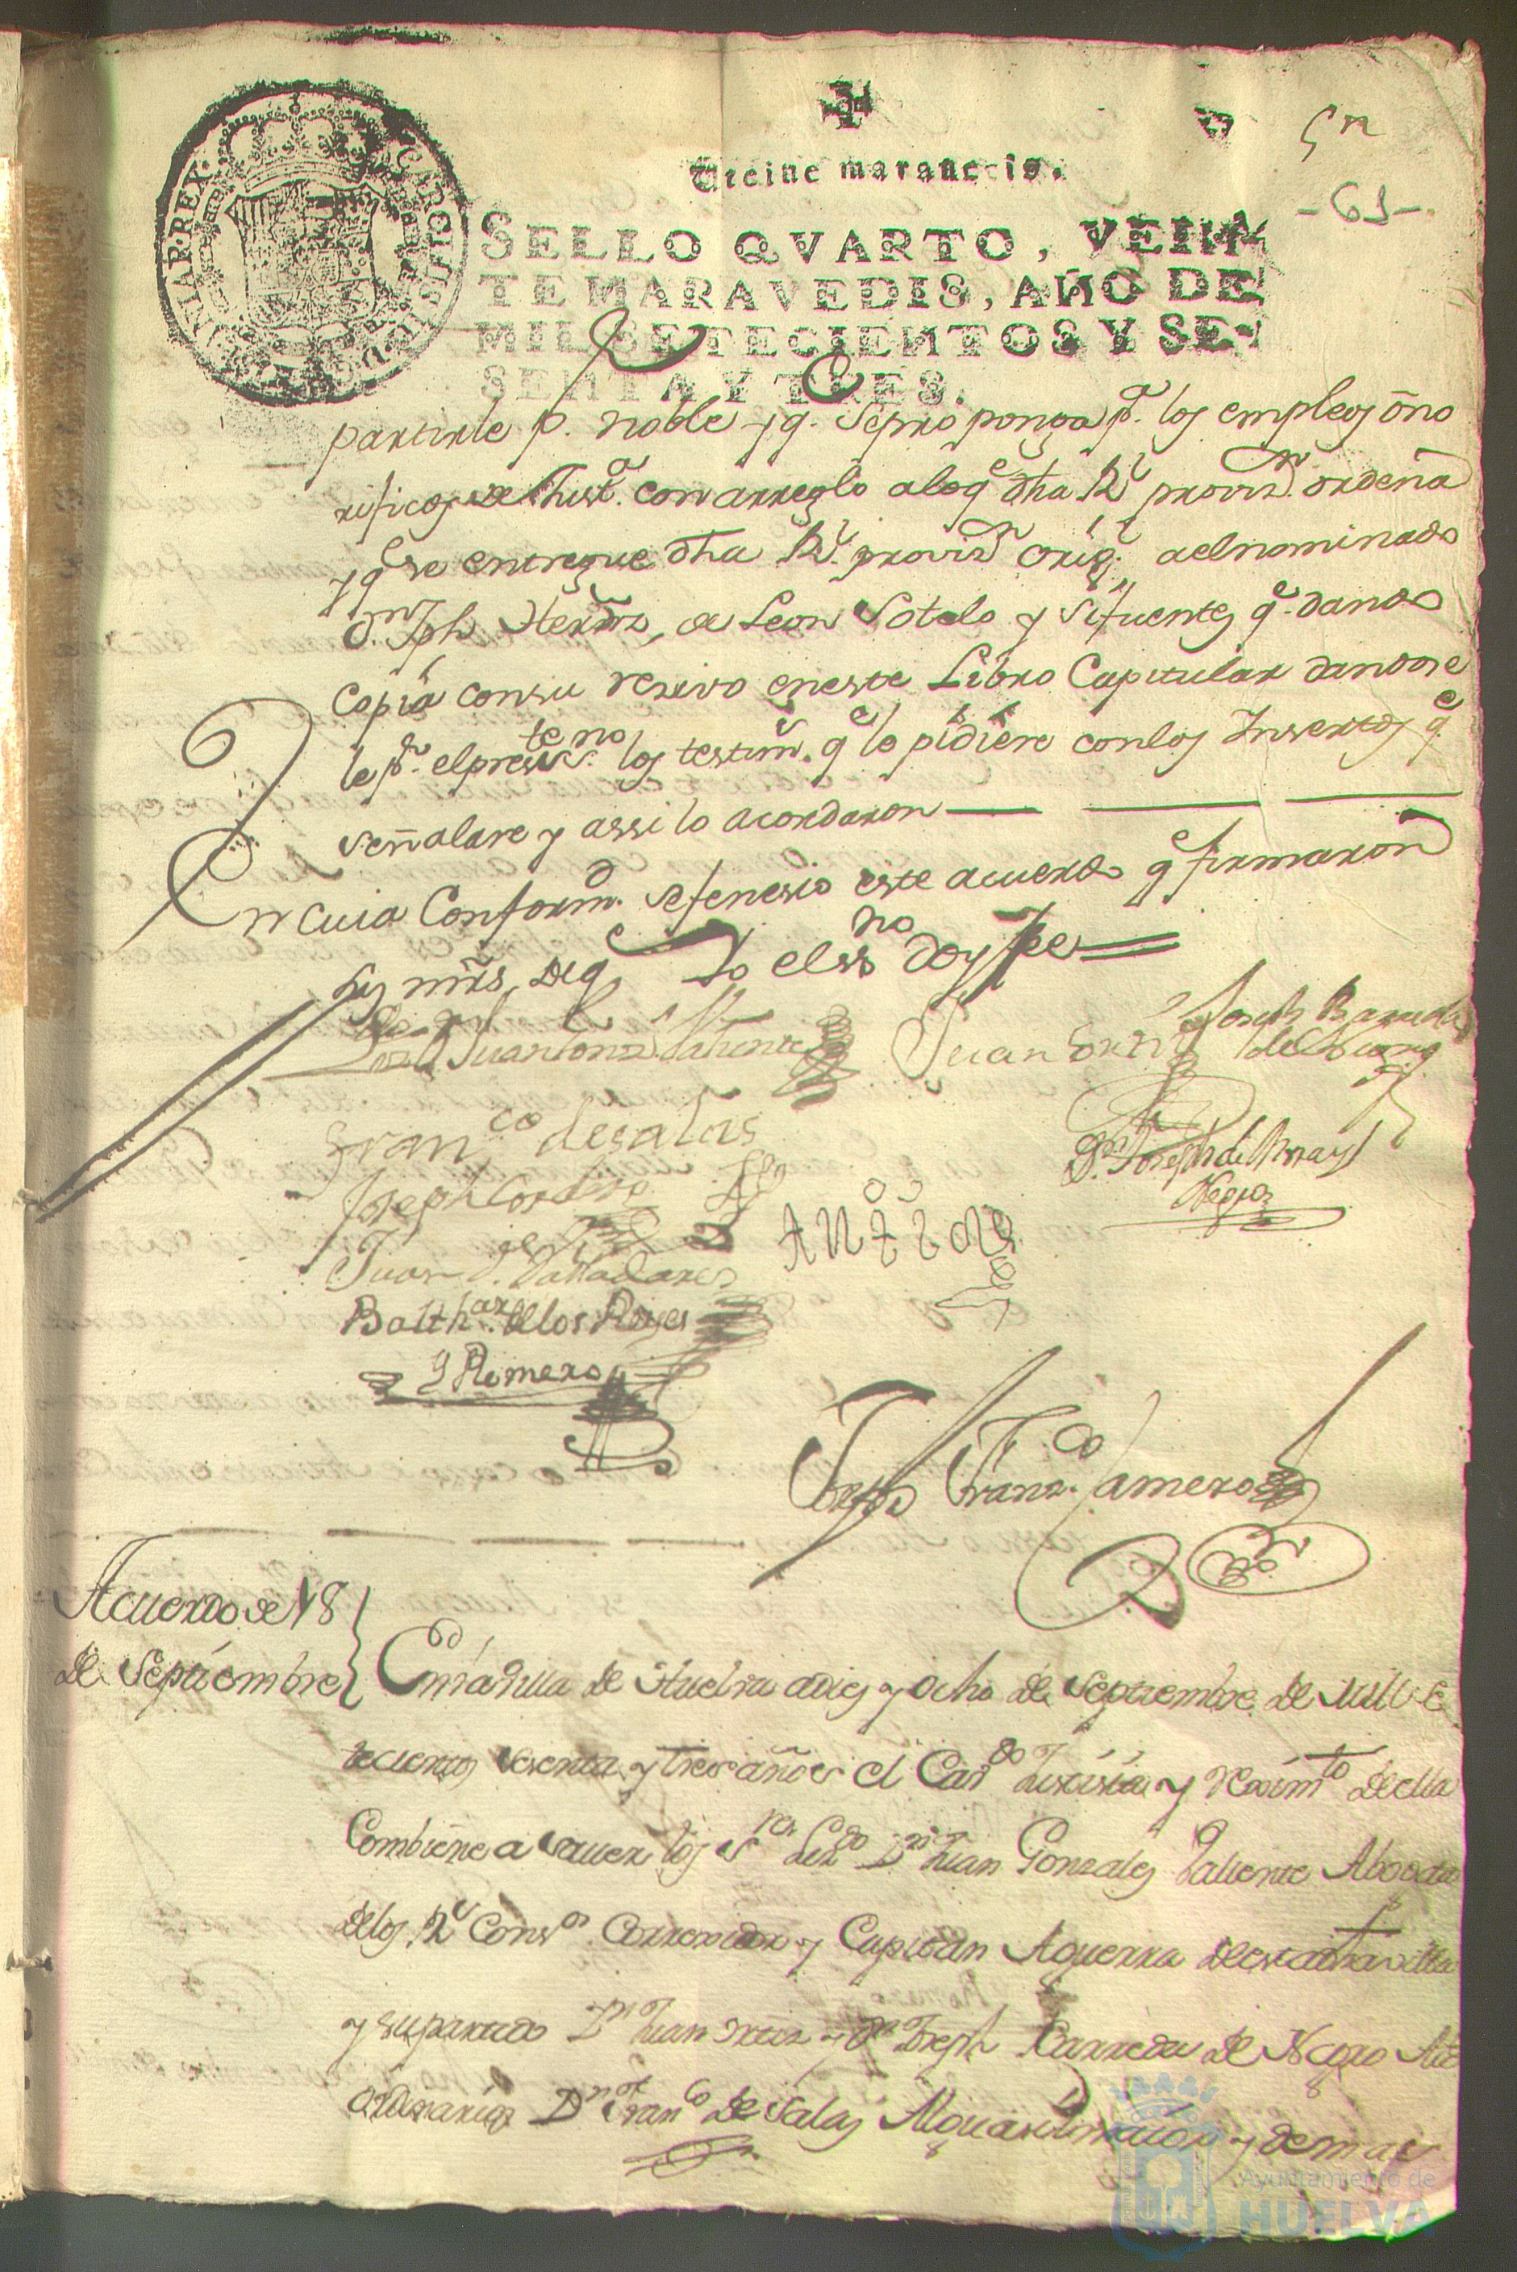 Veinte maravedis.
SELLO QVARTO, VEIN-
TE MARAVEDIS, AÑO DE
MIL SETECIENTOS Y SE-
SENTA Y TRES.
CAROLUS III D G HISPANIAR REX
- 61 -
partirle p. noble y q. se proponga pa. los empleos ono
rificos de Just.a con arreglo a lo q.e dha Rl provis.n ordena
y q.e se entregue dha Rl. provis.n orig.l a el nominado
D.n Jph Herrz. de Leon Sotelo y Sifuentes q.e dando
Copia con su resivo en este Libro Capitular dandose
le p.r el pres.te ss.no los testim.s q.e le pidiere con los Insertos q.e
señalare y assi lo acordaron
En cuia Conform.d se fenesio este acuerdo q.e firmaron
sus mrds. de q.e Yo el ss.no doy fee
Lizdo. Juan Gonz. Valiente
Juan Ortiz
Joseph Barreda
Fran.co de Salas
Joseph Cordero
D.n Joseph de
Negro
Juan J. Valladares
Balth.ar de los Reyes
y Romero
Joseph Franz.co Camero
Acuerdo de 18
de Septiembre
En la Villa de Huelva a dies y ocho de Septiembre de mill se
tecientos sesenta y tres años el Cav.do Justisia y Reximto de ella
Combiene a saver los S.res Liz.do D.n Juan Gonzales Valiente Abogado
de los Rl Cons.os Correxidor y Capitan Aguerra de esta dha villa
y su partido D.n Juan Ortiz y D.n Joseph Barreda de Negro Alc
ordinarios D.n Fran.co de Salas Alguasil maior y demas
Ayuntamiento de
HUELVA